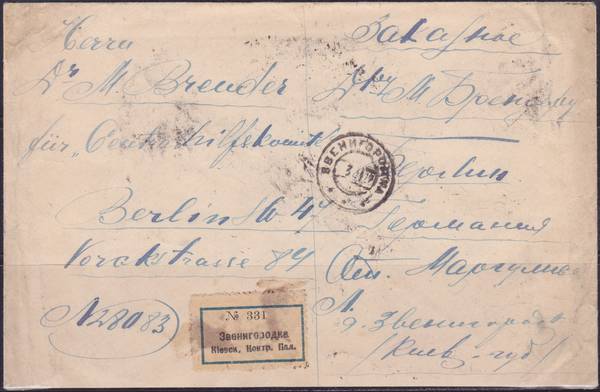 Herrn
Dr M. Brender
für "Central hilfskomité
Berlin SW 47
Yorckstrasse 84
№ 28083
Заказное
Д-ру М. Брендеру
Берлин
Германия
От. Маргулис
Л.
г. Звенигородка
/Киев. губ/
ЗВЕНИГОРОДКА
№ 331
Звенигородка
Кіевск, Контр. Пал.